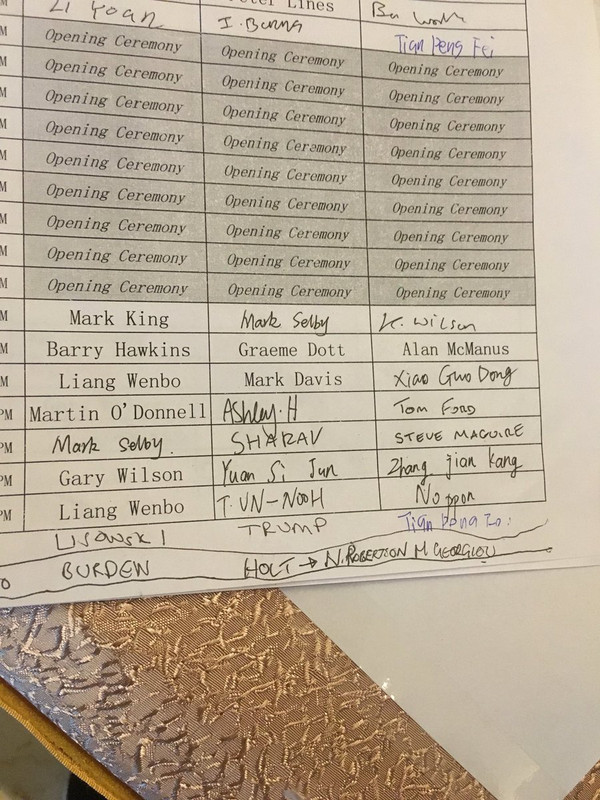 M Li Yoan Peter Lines Ba Work
M J. Burns Tian Peng Fei
M Opening Ceremony Opening Ceremony Opening Ceremony
M Opening Ceremony Opening Ceremony Opening Ceremony
M Opening Ceremony Opening Ceremony Opening Ceremony
M Opening Ceremony Opening Ceremony Opening Ceremony
M Opening Ceremony Opening Ceremony Opening Ceremony
M Opening Ceremony Opening Ceremony Opening Ceremony
M Opening Ceremony Opening Ceremony Opening Ceremony
M Opening Ceremony Opening Ceremony Opening Ceremony
M Opening Ceremony Opening Ceremony Opening Ceremony
M Mark King Mark Selby K. Wilson
M Barry Hawkins Graeme Dott Alan McManus
M Liang Wenbo Mark Davis Xiao Guo Dong
PM Martin O'Donnell Ashley.H Tom Ford
PM Mark Selby. SHARAV STEVE MAGUIRE
PM Gary Wilson Yuan Si Jun Zhang Jian Kang
PM Liang Wenbo T. UN-NOOH Noppon
LISOWSKI TRUMP Tian Peng Fei
BURDEN HOLT → N. ROBERTSON M. GEORGIOU